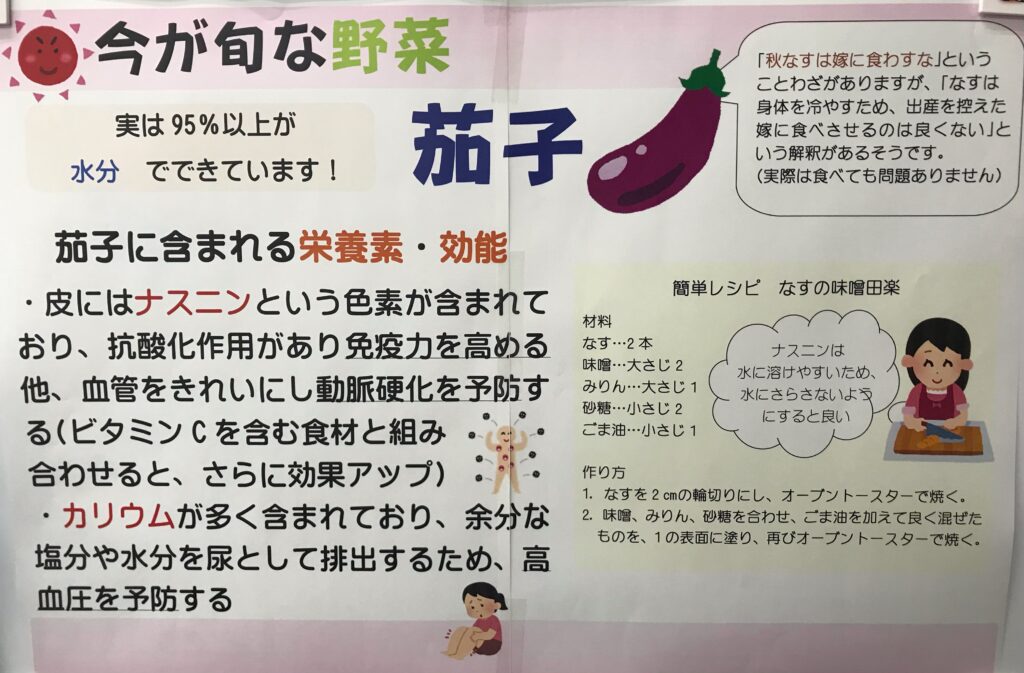 今が旬な野菜
実は95％以上が
水分　でできています！
茄子
「秋なすは嫁に食わすな」という
ことわざがありますが、「なすは
身体を冷やすため、出産を控えた
嫁に食べさせるのは良くない」と
いう解釈があるそうです。
(実際は食べても問題ありません)
茄子に含まれる栄養素・効能
・皮にはナスニンという色素が含まれて
おり、抗酸化作用があり免疫力を高める
他、血管をきれいにし動脈硬化を予防す
る(ビタミンCを含む食材と組み
合わせると、さらに効果アップ)
・カリウムが多く含まれており、余分な
塩分や水分を尿として排出するため、高
血圧を予防する
簡単レシピ　なすの味噌田楽
材料
なす…2本
味噌…大さじ2
みりん…大さじ1
砂糖…小さじ2
ごま油…小さじ1
ナスニンは
水に溶けやすいため、
水にさらさないよう
にすると良い
作り方
1. なすを2㎝の輪切りにし、オーブントースターで焼く。
2. 味噌、みりん、砂糖を合わせ、ごま油を加えて良く混ぜた
ものを、1の表面に塗り、再びオーブントースターで焼く。